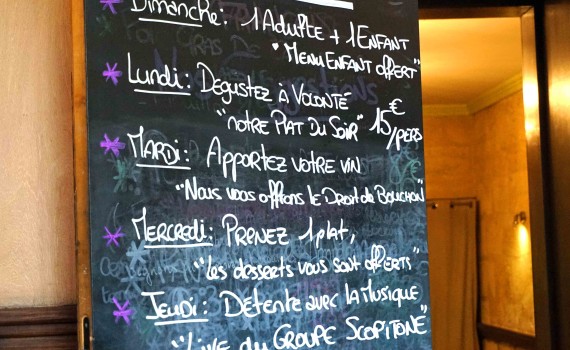 Dimanche: 1 Adulte + 1 Enfant
"Menu Enfant offert"
Lundi: Dégustez à Volonté
"notre Plat du Soir" 15€/pers
Mardi: Apportez votre vin
"Nous vous offrons le Droit de Bouchon"
Mercredi: Prenez 1 plat,
"Les desserts vous sont offerts"
Jeudi: Détente avec la Musique
"Live du Groupe Scopitone"